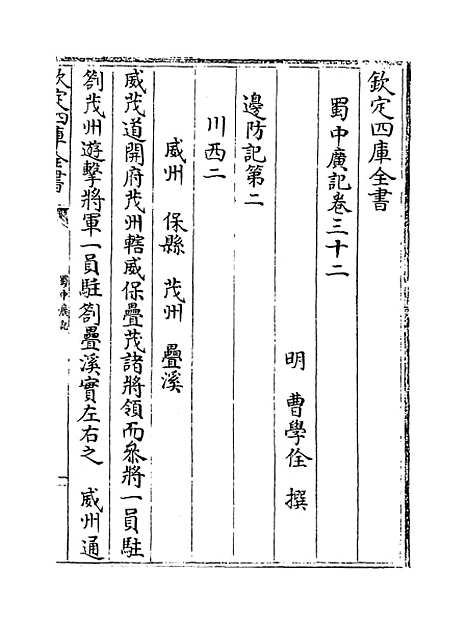 欽定四庫全書
蜀中廣記卷三十二
明　曹學佺　撰
邊防記第二
川西二
威州　保縣　茂州　疊溪
威茂道開府茂州轄威保疊茂諸將領而叅將一員駐
劄茂州遊擊將軍一員駐劄疊溪實左右之　威州通
欽定四庫全書
蜀中廣記
一